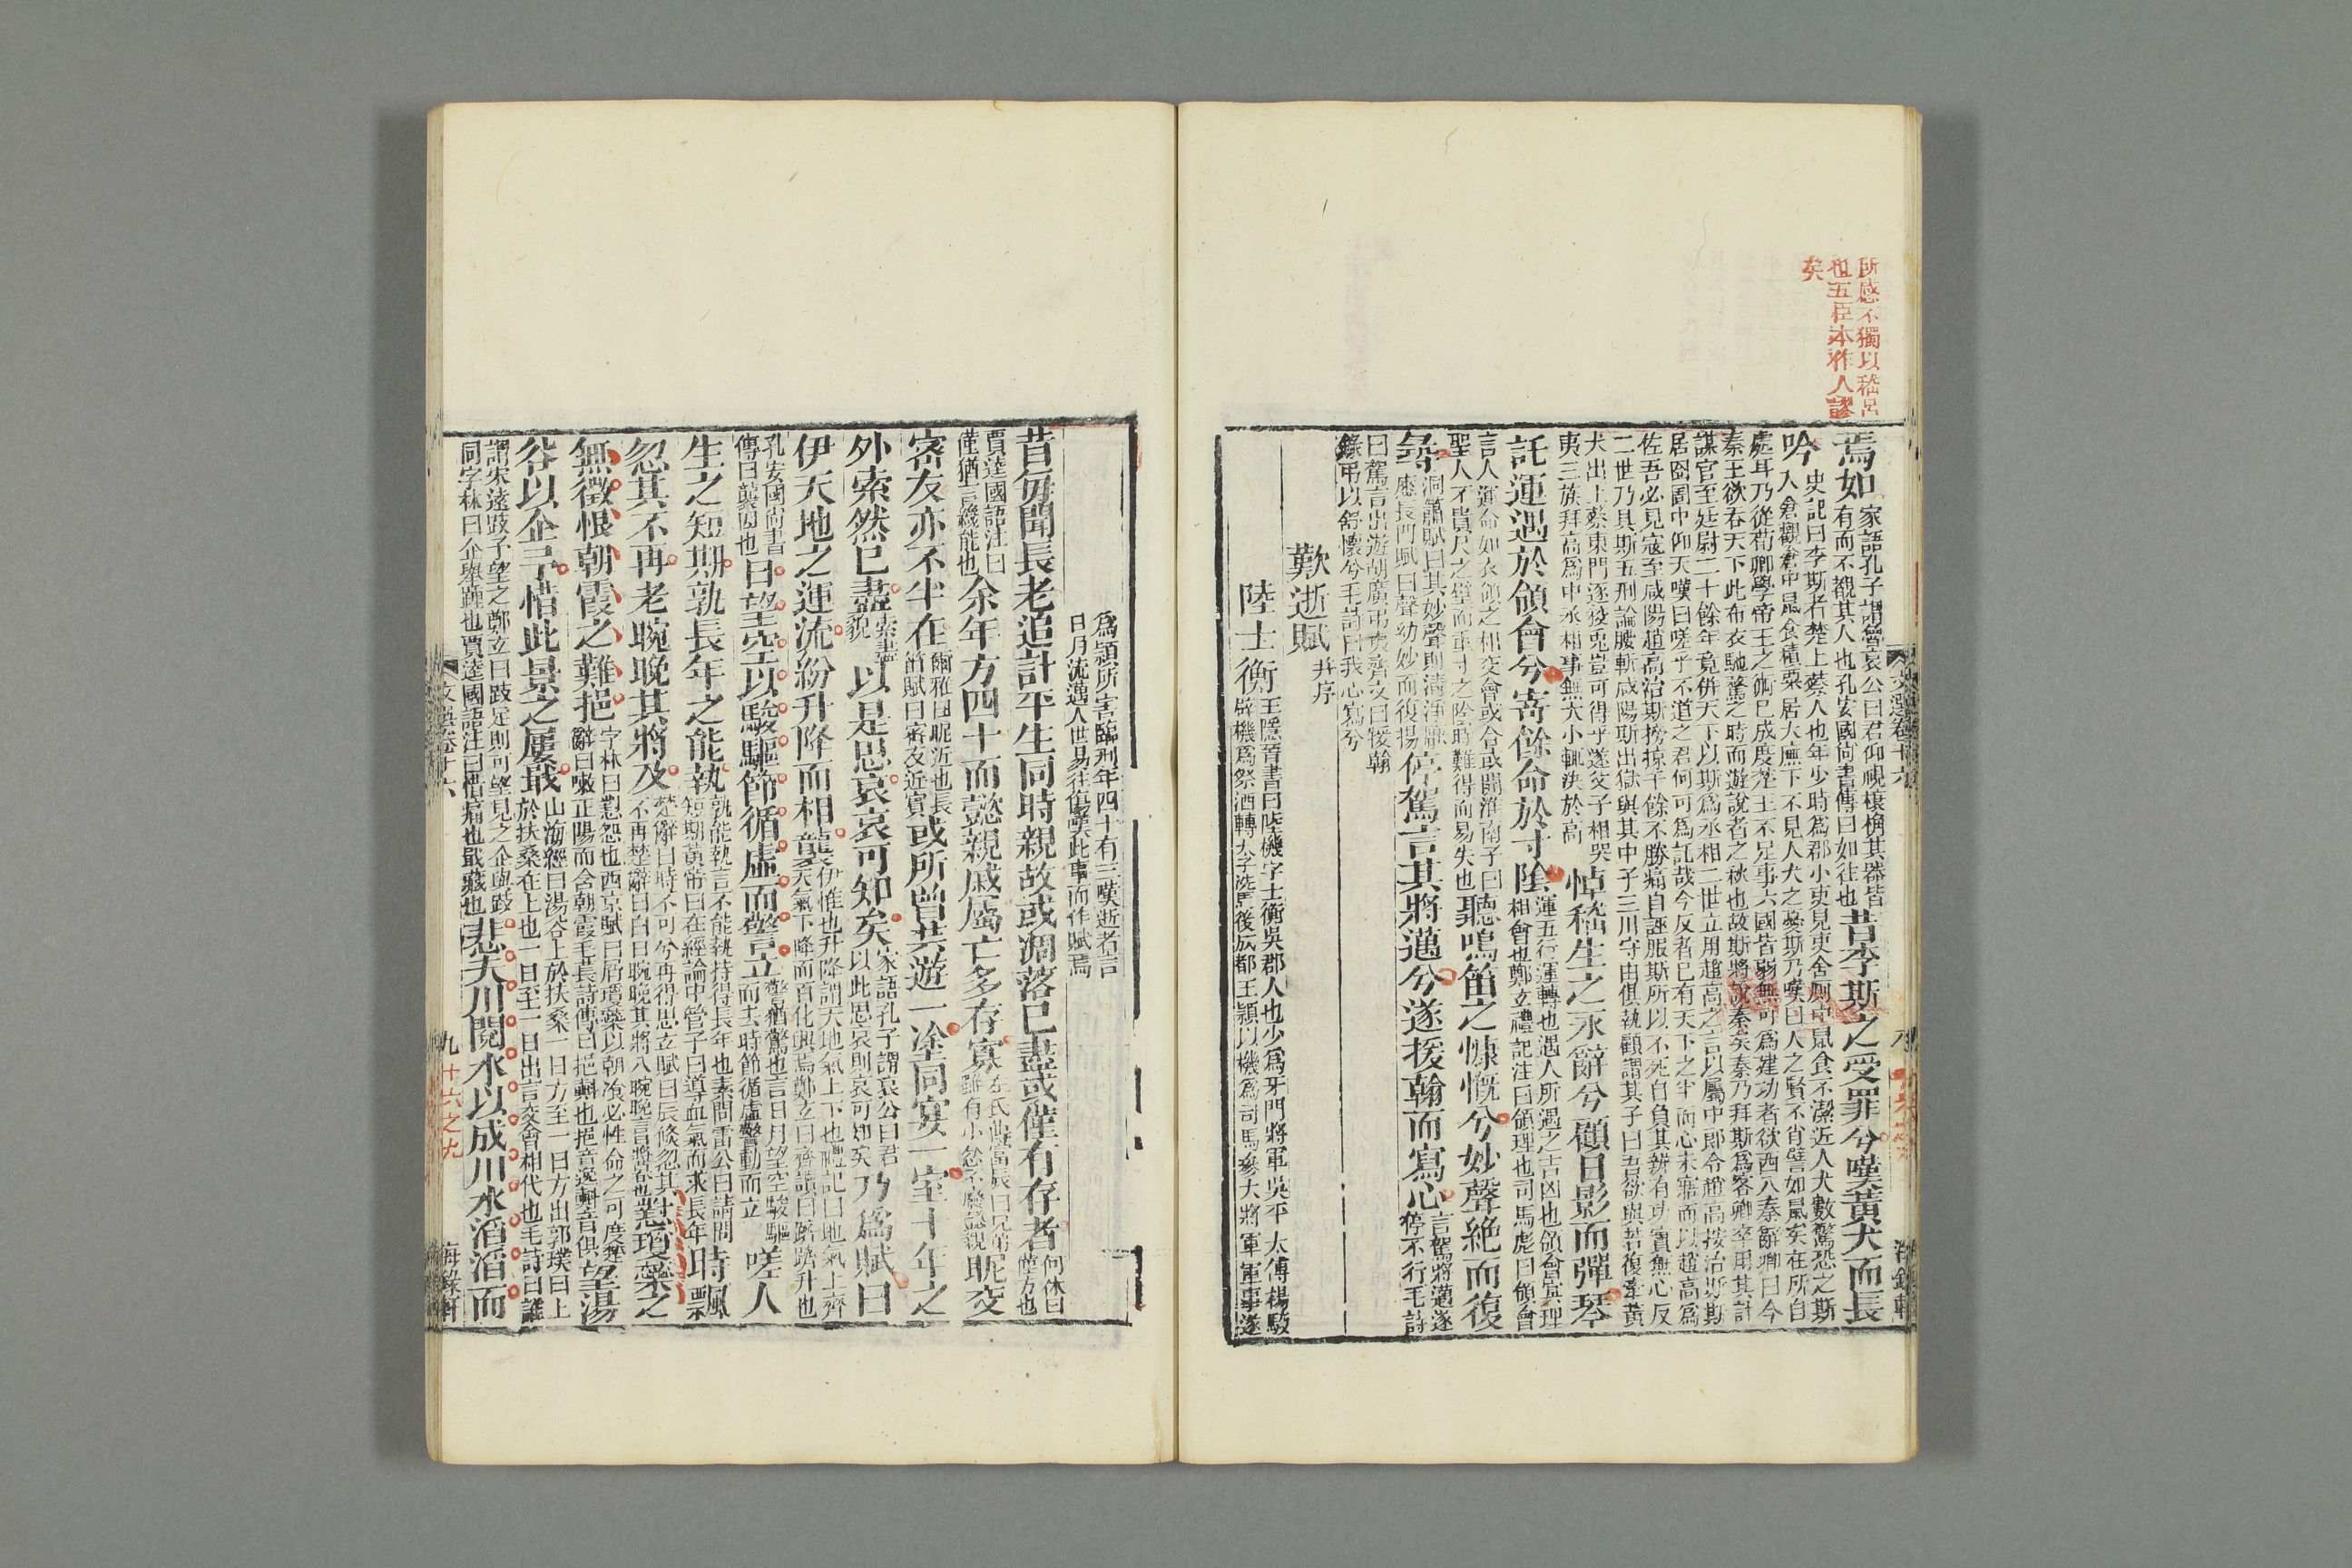 所感不獨以嵇呂
也五臣本作人謬
矣
文選卷十六
海錄軒
焉如家語孔子謂魯哀公曰君仰視榱桷其器皆
有而不覩其人也孔安國尚書傳曰如往也昔李斯之受罪兮嘆黃犬而長
吟史記曰李斯者楚上蔡人也年少時為郡小吏見吏舍廁中鼠食不潔近人犬數驚恐之斯
入倉觀倉中鼠食積粟居大廡下不見人犬之憂斯乃嘆曰人之賢不肖譬如鼠矣在所自
處耳乃從荀卿學帝王之術已成度楚王不足事六國皆弱無可為建功者欲西入秦辭卿曰今
秦王欲吞天下此布衣馳騖之時而遊說者之秋也故斯將說秦矣秦乃拜斯為客卿卒用其計
謀官至廷尉二十餘年竟併天下以斯為丞相二世立用趙高之言以屬中郎令趙高按治斯斯
居囹圄中仰天嘆曰嗟乎不道之君何可為計哉今反者已有天下之半而心未寤而以趙高為
佐吾必見寇至咸陽趙高治斯搒掠千餘不勝痛自誣服斯所以不死自負其辨有功實無心反
二世乃具斯五刑論腰斬咸陽斯出獄與其中子三川守由俱執顧謂其子曰吾欲與若復牽黃
犬出上蔡東門逐狡兎豈可得乎遂父子相哭
夷三族拜高為中丞相事無大小輒決於高悼嵇生之永辭兮顧日影而彈琴
託運遇於領會兮寄餘命於寸陰運五行運轉也遇人所遇之吉凶也領會冥理
相會也鄭玄禮記注曰領理也司馬彪曰領會
言人運命如衣領之相交會或合或開淮南子曰
聖人不貴尺之璧而重寸之陰時難得而易失也聽鳴笛之慷慨兮妙聲絕而復
尋洞簫賦曰其妙聲則清淨厭
㥷長門賦曰聲幼妙而復揚停駕言其將邁兮遂援翰而寫心言駕將邁遂
停不行毛詩
曰駕言出遊胡廣弔夷齊文曰援翰
錄弔以舒懷兮毛詩曰我心寫兮
歎逝賦并序
陸士衡王隱晉書曰陸機字士衡吳郡人也少為牙門將軍吳平太傅楊駿
辟機為祭酒轉太子洗馬後成都王穎以機為司馬參大將軍軍事遂
為穎所害臨刑年四十有三嘆逝者言
日月流邁人世易往傷歎此事而作賦焉
昔每聞長老追計平生同時親故或凋落已盡或僅有存者何休曰
僅方也
賈逵國語注曰
僅猶言纔能也余年方四十而懿親戚屬亡多存寡左氏傳富辰曰兄弟
雖有小忿不廢懿親昵交
密友亦不半在爾雅曰昵近也長
笛賦曰密友近賓或所曾共遊一塗同宴一室十年之
外索然已盡索盡
貌以是思哀哀可知矣家語孔子謂哀公曰君
以此思哀則哀可知矣乃為賦曰
伊天地之運流紛升降而相襲伊惟也升降謂天地氣上下也禮記曰地氣上齊
天氣下降而百化興焉鄭玄曰齊讀曰躋躋升也
孔安國尚書
傳曰襲因也日望空以駿驅節循虛而警立警猶驚也言日月望空駿驅
而去時節循虛警動而立嗟人
生之短期孰長年之能執孰能執言不能執持得長年也素問雷公曰請問
短期黃帝曰在經論中管子曰導血氣而求長年時飄
忽其不再老晼晚其將及楚辭曰時不可兮再得思玄賦曰辰倏忽其
不再楚辭曰白日晼晚其將入晼晚言將欲也懟瓊蘂之
無徵恨朝霞之難挹字林曰懟怨也西京賦曰屑瓊蘂以朝飡必性命之可度楚
辭曰嗽正陽而含朝霞毛萇詩傳曰挹㪺也挹音邑㪺音俱望湯
谷以企予惜此景之屢戢山海經曰湯谷上於扶桑一日方至一日方出郭璞曰上
於扶桑在上也一日至一日出言交會相代也毛詩曰誰
謂宋遠跂予望之鄭玄曰跂足則可望見之企與跂
同字林曰企舉踵也賈逵國語注曰惜痛也戢藏也悲夫川閱水以成川水滔滔而
文選卷十六
九
十六之九
海錄軒